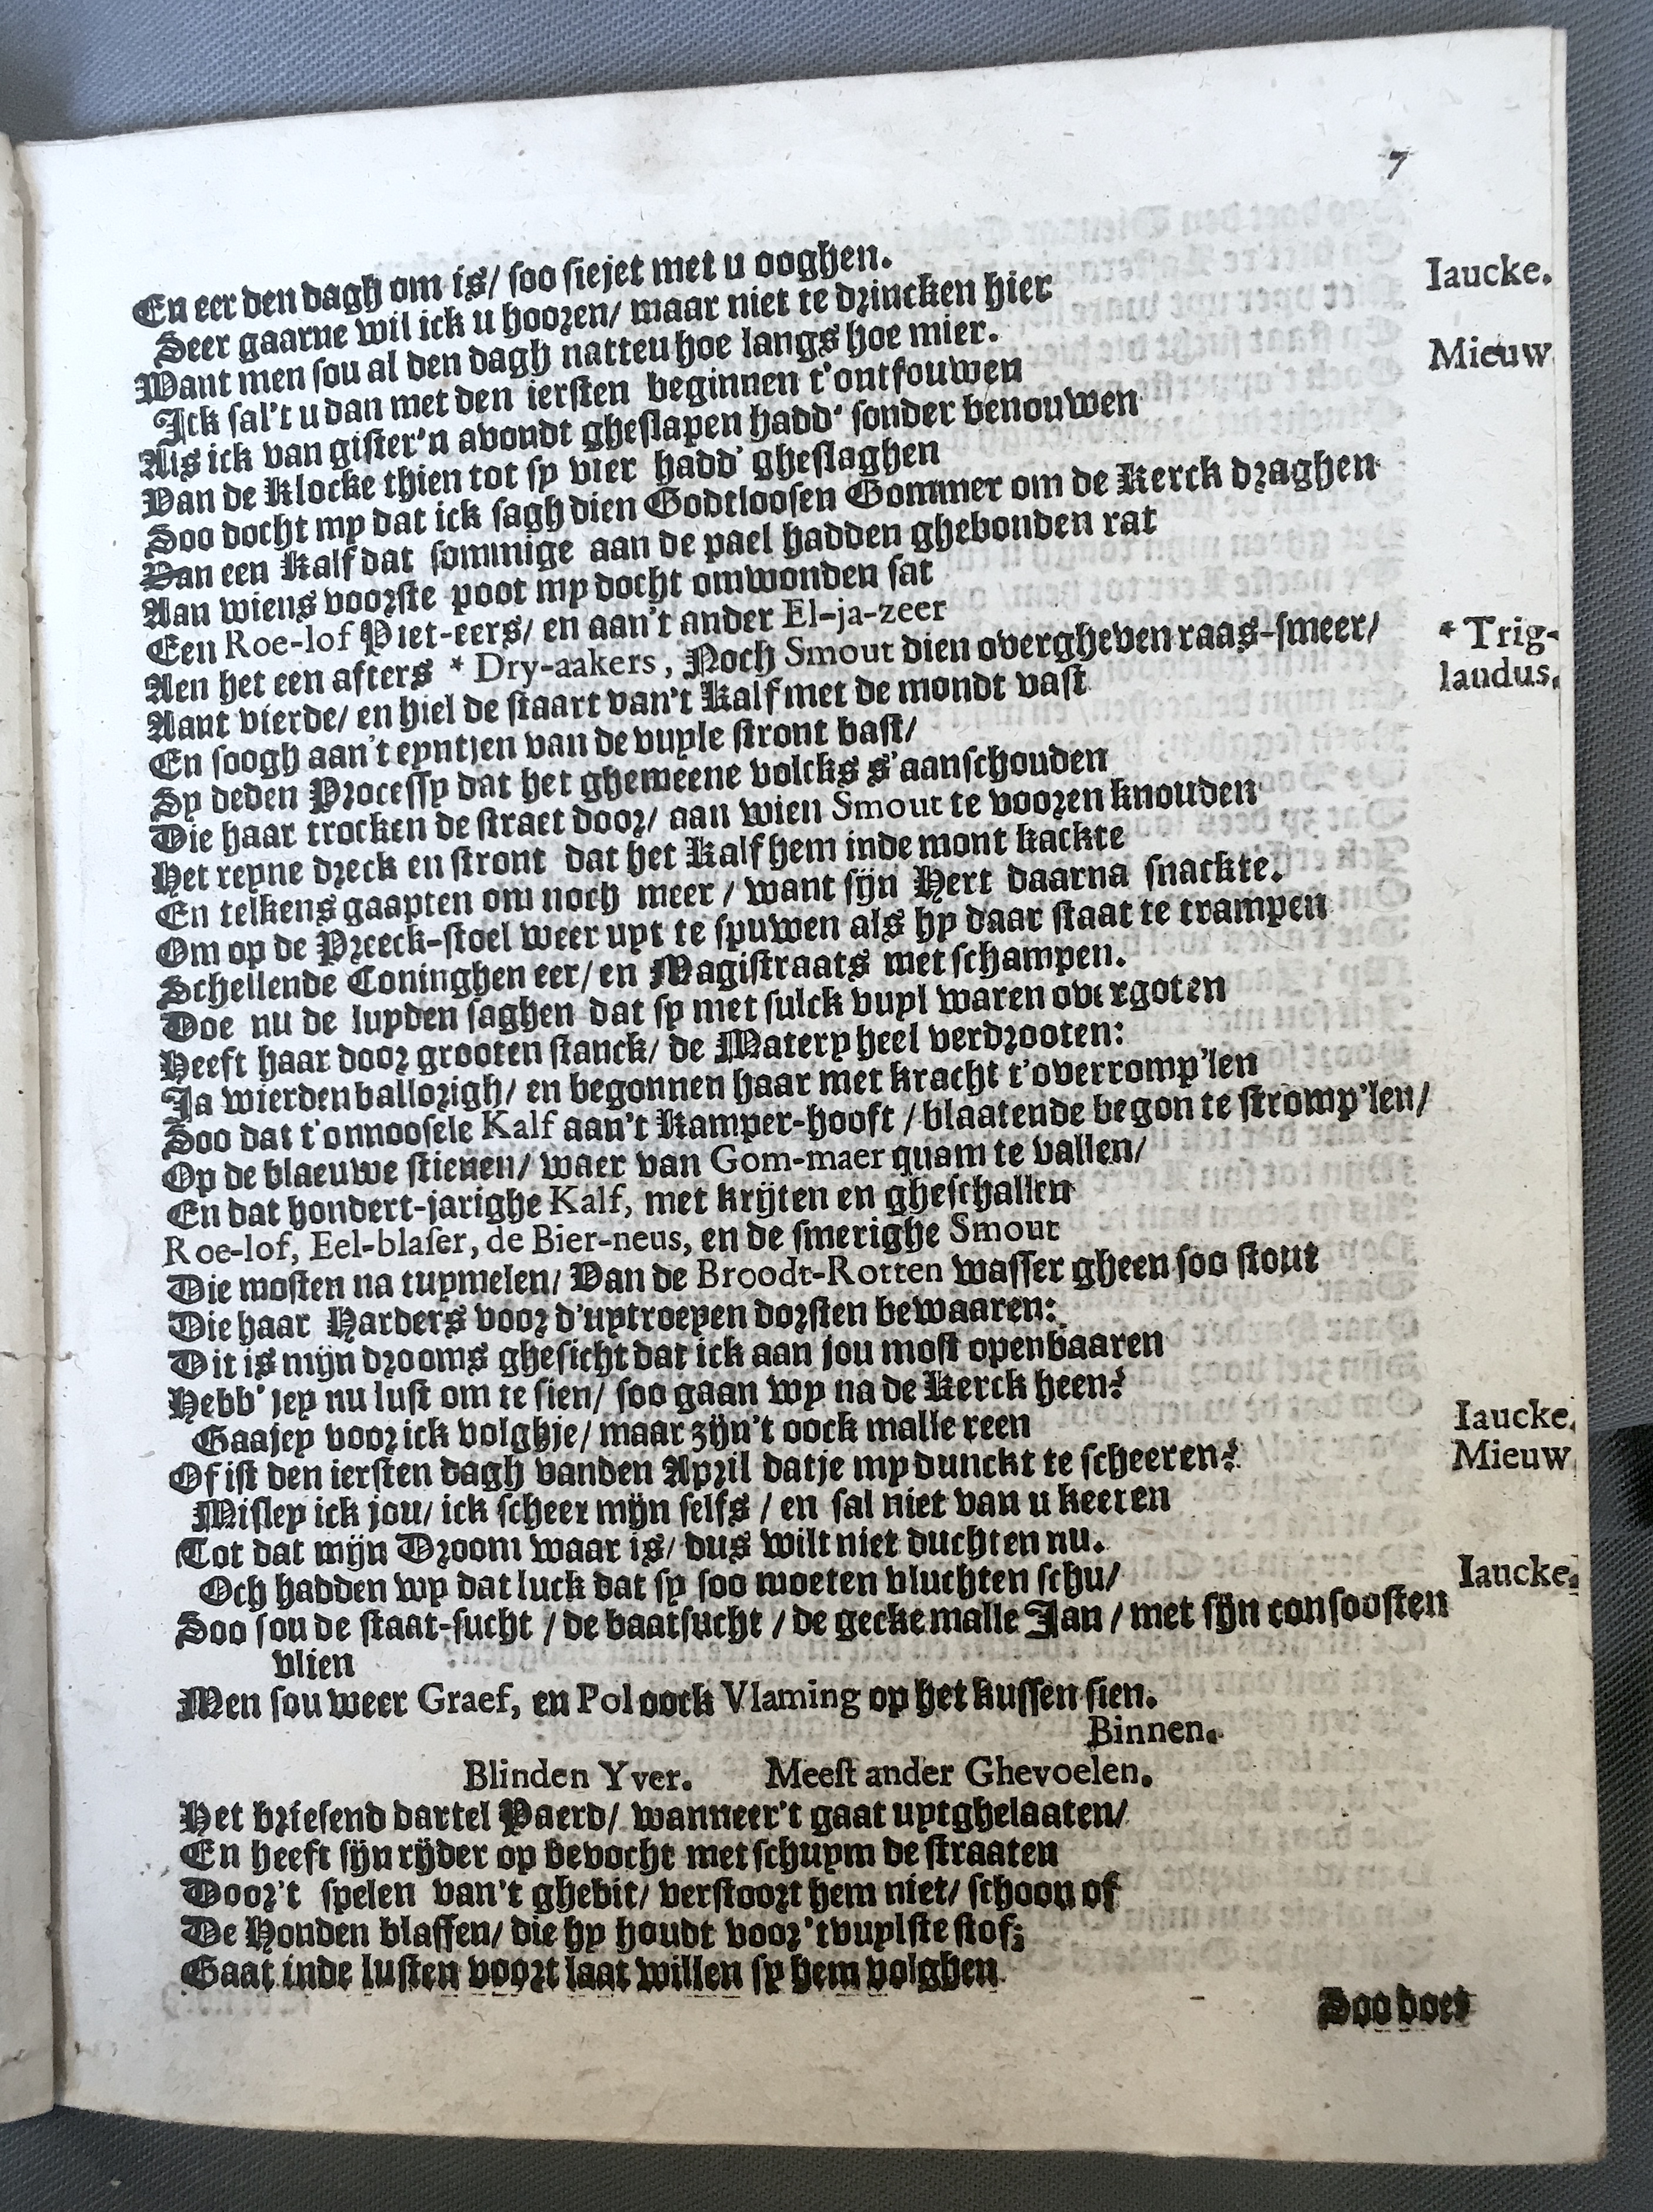 7
En eer den dagh om is/ soo siejet met u ooghen.
Seer gaarne wil ick u hooren/ maar niet te drincken hier Iaucke.
Want men sou al den dagh natteu hoe langs hoe mier.
Ick sal't u dan met den iersten beginnen t'ontfouwen Mieuw
Als ick van gister'n avondt gheslapen hadd' sonder benouwen
Van de Klocke thien tot sy vier hadd' gheslaghen
Soo docht my dat ick sagh dien Godtloosen Gommer om de Kerck draghen
Van een Kalf dat sommige aan de pael hadden ghebonden rat
Aan wiens voorste poot my docht omwonden sat
Een Roe-lof Piet-eers/ en aan't ander El-ja-zeer
Aen het een afters * Dry-aakers, Noch Smout dien overgheven raas-smeer/ * Trig-
Aant vierde/ en hiel de staart van't Kalf met de mondt vast laudus.
En soogh aan't eyntjen van de vuyle stront bast/
Sy deden Processy dat het ghemeene volcks s'aanschouden
Die haar trocken de straet door/ aan wien Smout te vooren knouden
Het reyne dreck en stront dat het Kalf hem inde mont kackte
En telkens gaapten om noch meer / want sijn Hert daarna snackte.
Om op de Preeck-stoel weer uyt te spuwen als hy daar staat te trampen
Schellende Coninghen eer/ en Magistraats met schampen.
Doe nu de luyden saghen dat sy met sulck vuyl waren overgoten
Heeft haar door grooten stanck/ de Matery heel verdrooten:
Ja wierden ballorigh/ en begonnen haar met kracht t'overromp'len
Soo dat t'onnoosele Kalf aan't Kamper-hooft / blaatende begon te stromp'len/
Op de blaeuwe stienen/ waer van Gom-maer quam te vallen/
En dat hondert-jarighe Kalf, met krijten en gheschallen
Roe-lof, Eel-blaser, de Bier-neus, en de smerighe Smout
Die mosten na tuymelen/ Van de Broodt-Rotten wasser gheen soo stout
Die haar Harders voor d'uytroepen dorsten bewaaren:
Dit is mijn drooms ghesicht dat ick aan jou most openbaaren
Hebb' jey nu lust om te sien/ soo gaan wy na de Kerck heen?
Gaajey voor ick volghje/ maar zijn't oock malle reen Iaucke.
Of ist den iersten dagh vanden April datje my dunckt te scheeren? Mieuw
Misley ick jou/ ick scheer mijn selfs / en sal niet van u keeren
Tot dat mijn Droom waar is/ dus wilt niet duchten nu.
Och hadden wy dat luck dat sy soo moeten vluchten schu/ Iaucke.
Soo sou de staat-sucht / de baatsucht / de gecke malle Jan / met sijn consoosten
vlien
Men sou weer Graef, en Pol oock Vlaming op het kussen sien.
Binnen.
Blinden Yver. Meest ander Ghevoelen.
Het briesend dartel Paerd/ wanneer't gaat uytghelaaten/
En heeft sijn rijder op bevocht met schuym de straaten
Door't spelen van't ghebit/ verstoort hem niet/ schoon of
De Honden blaffen/ die hy houdt voor 't vuylste stof;
Gaat inde lusten voort laat willen sy hem volghen
Soo doet